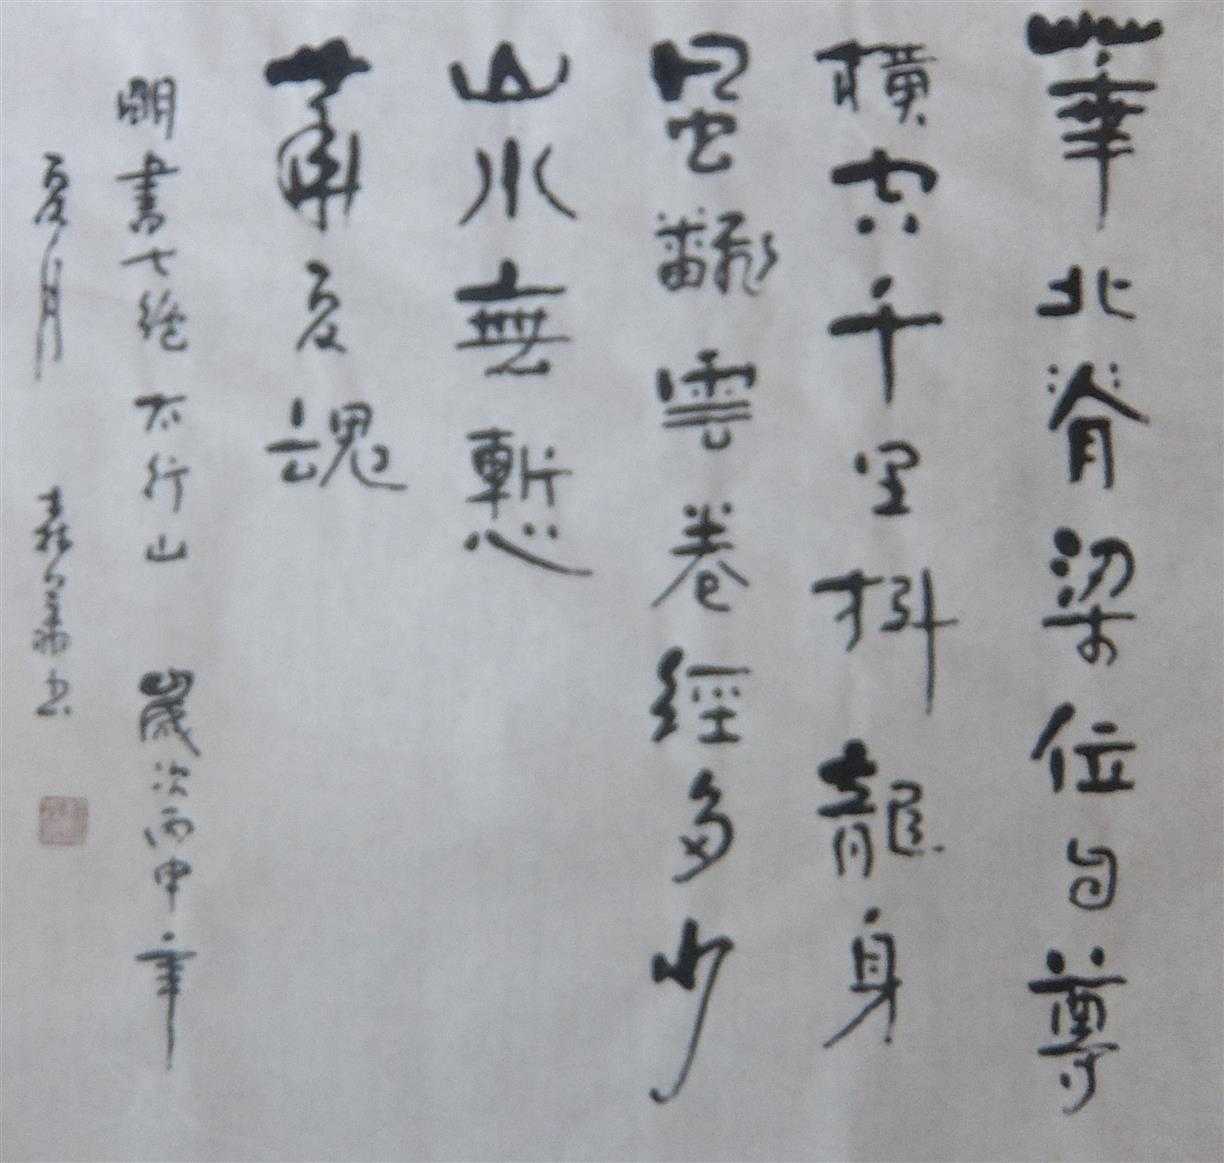 華北脊梁位自尊
橫千里抖龍身
風翻雲卷經多少
山水無慙
華夏魂
明書七絕太行山 歲次丙申年
夏月